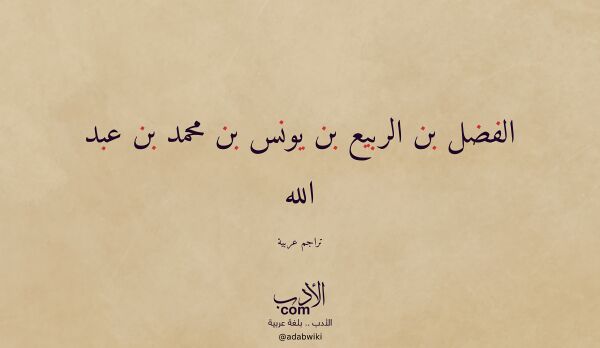 الفضل بن الربيع بن يونس بن محمد بن عبد
الله
تراجم عربية
الأدب
com
الأدب .. بلغة عربية
@adabwiki